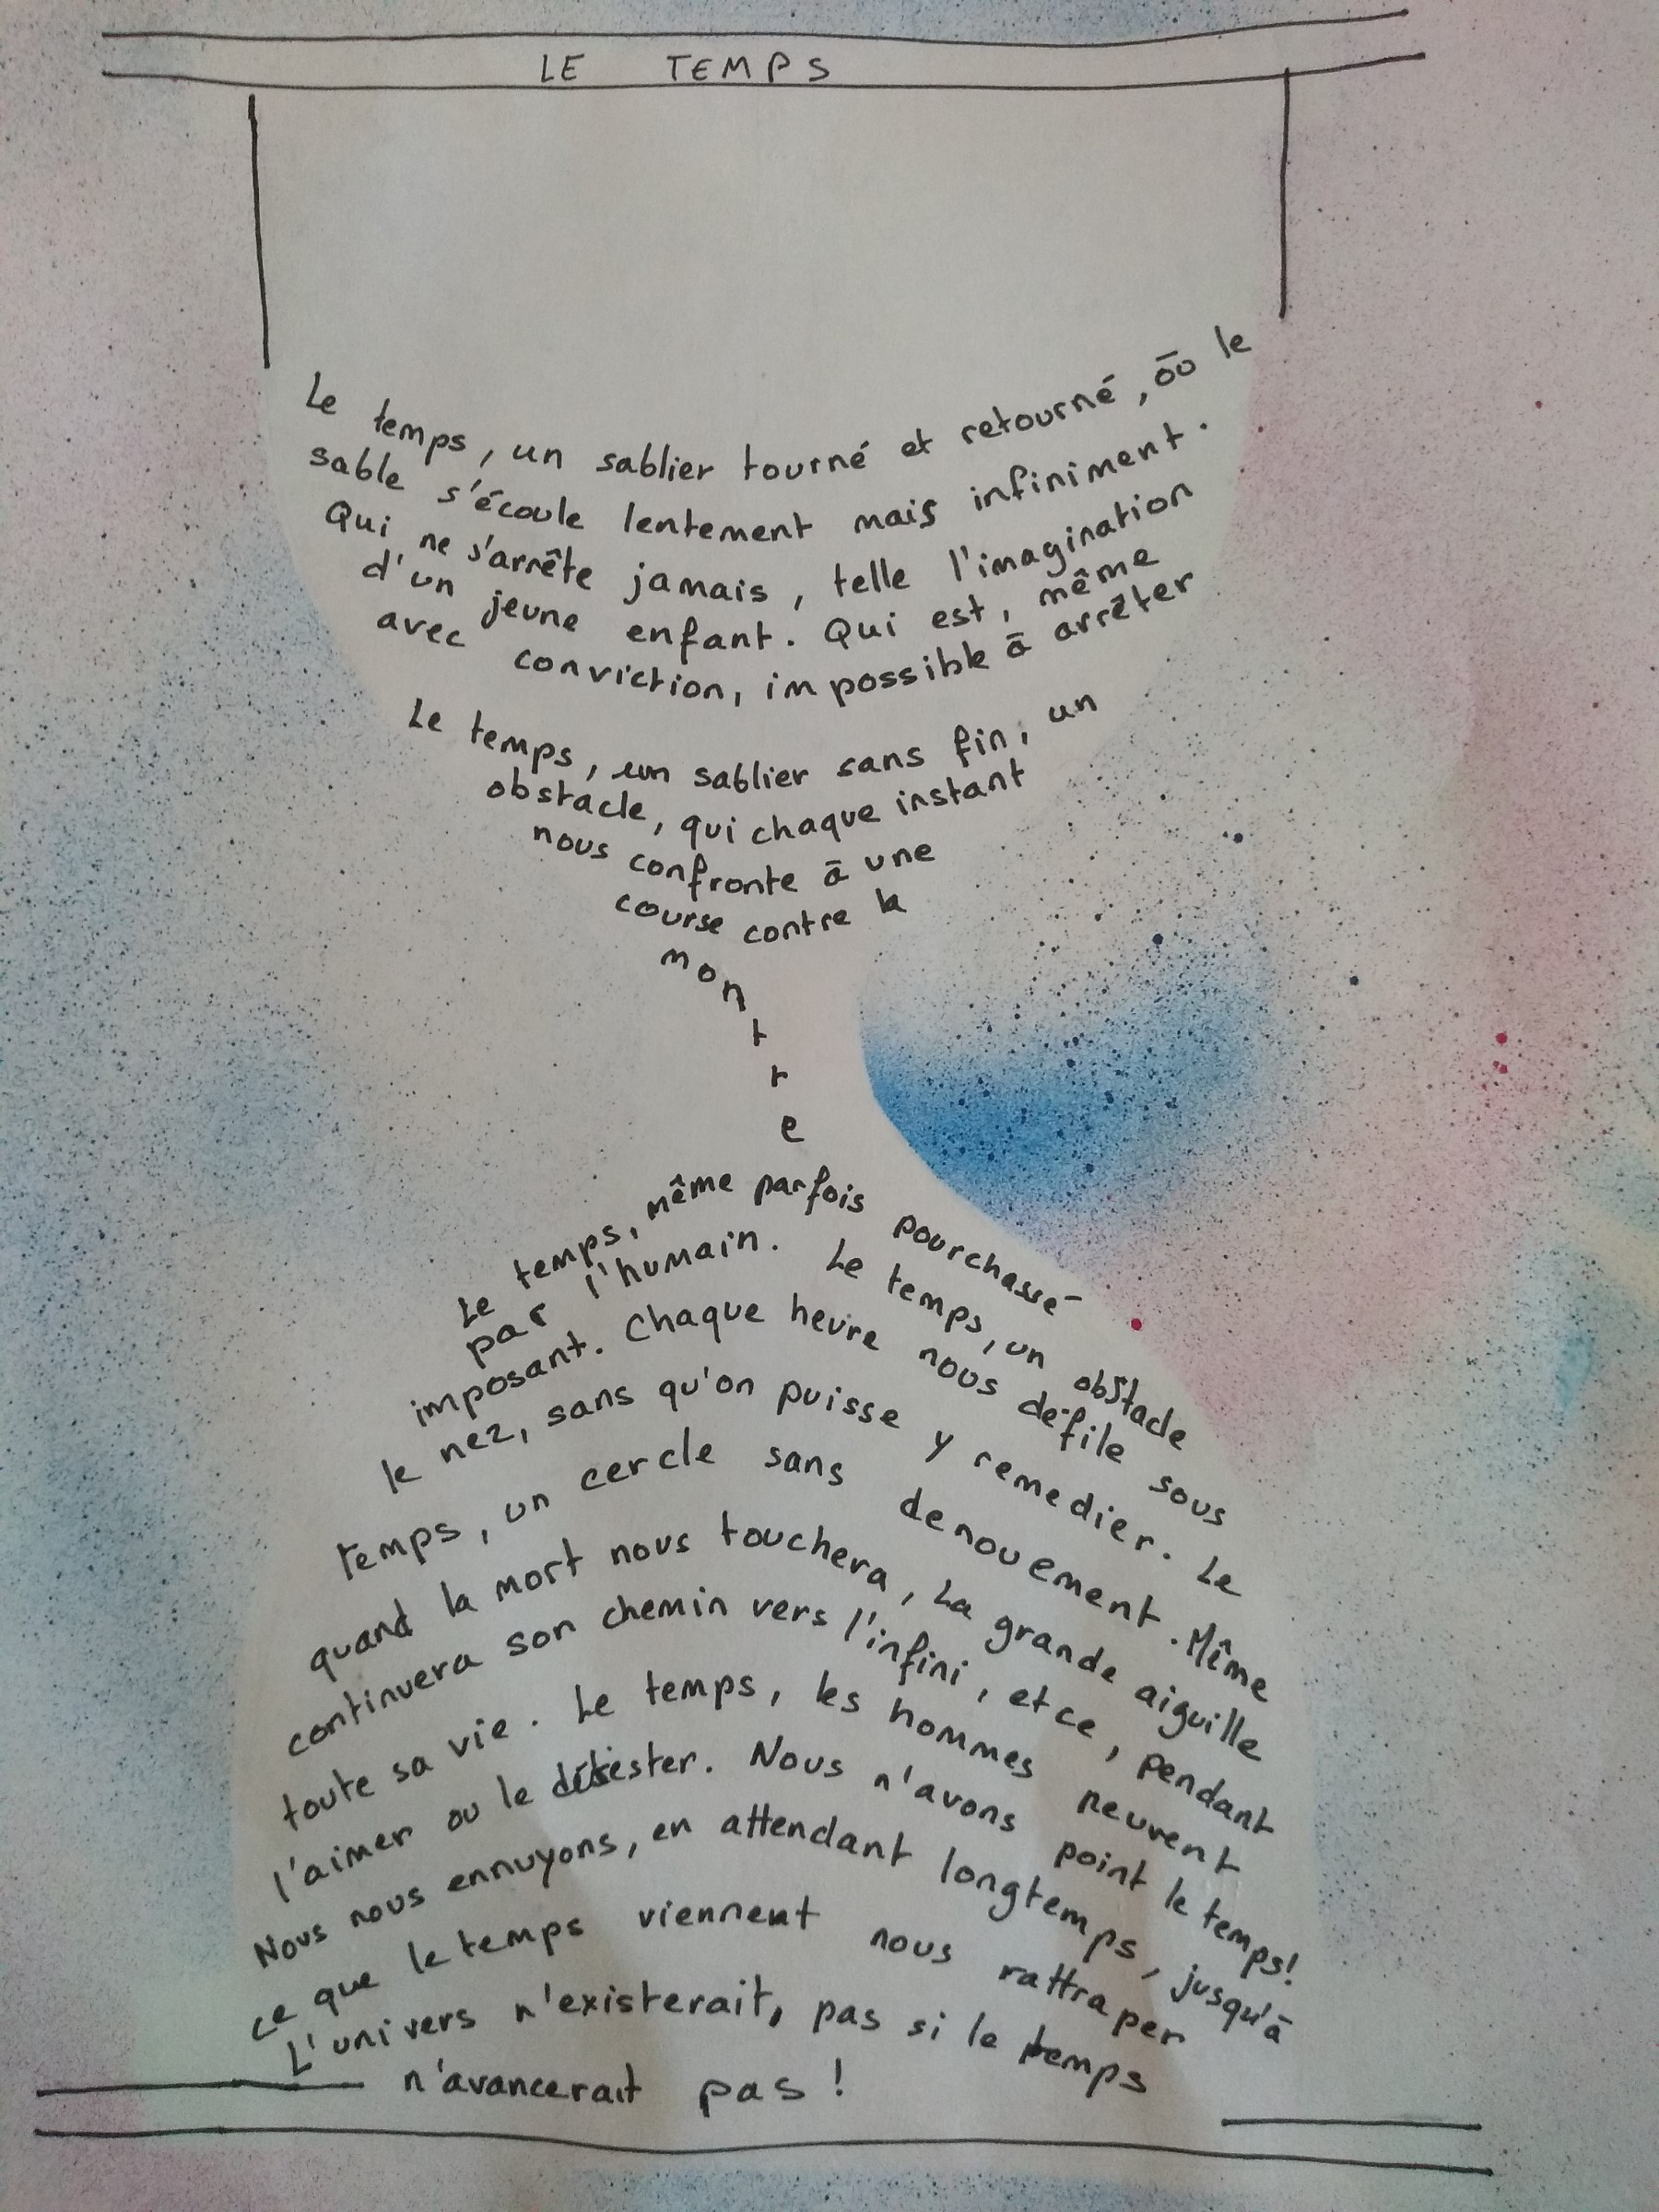 LE TEMPS
Le temps, un sablier tourné et retourné, où le
sable s'écoule lentement mais infiniment.
Qui ne s'arrête jamais, telle l'imagination
d'un jeune enfant. Qui est, même
avec conviction, impossible à arrêter
Le temps, un sablier sans fin, un
obstacle, qui chaque instant
nous confronte à une
course contre la
montre
Le temps, même parfois pourchassé
par l'humain. Le temps, un obstacle
imposant. Chaque heure nous défile sous
le nez, sans qu'on puisse y remedier. Le
temps, un cercle sans denouement. Même
quand la mort nous touchera, La grande aiguille
continuera son chemin vers l'infini, et ce, pendant
toute sa vie. Le temps, les hommes peuvent
l'aimer ou le détester. Nous n'avons point le temps!
Nous nous ennuyons, en attendant longtemps, jusqu'à
ce que le temps viennent nous rattraper
L'univers n'existerait, pas si le temps
n'avancerait pas !